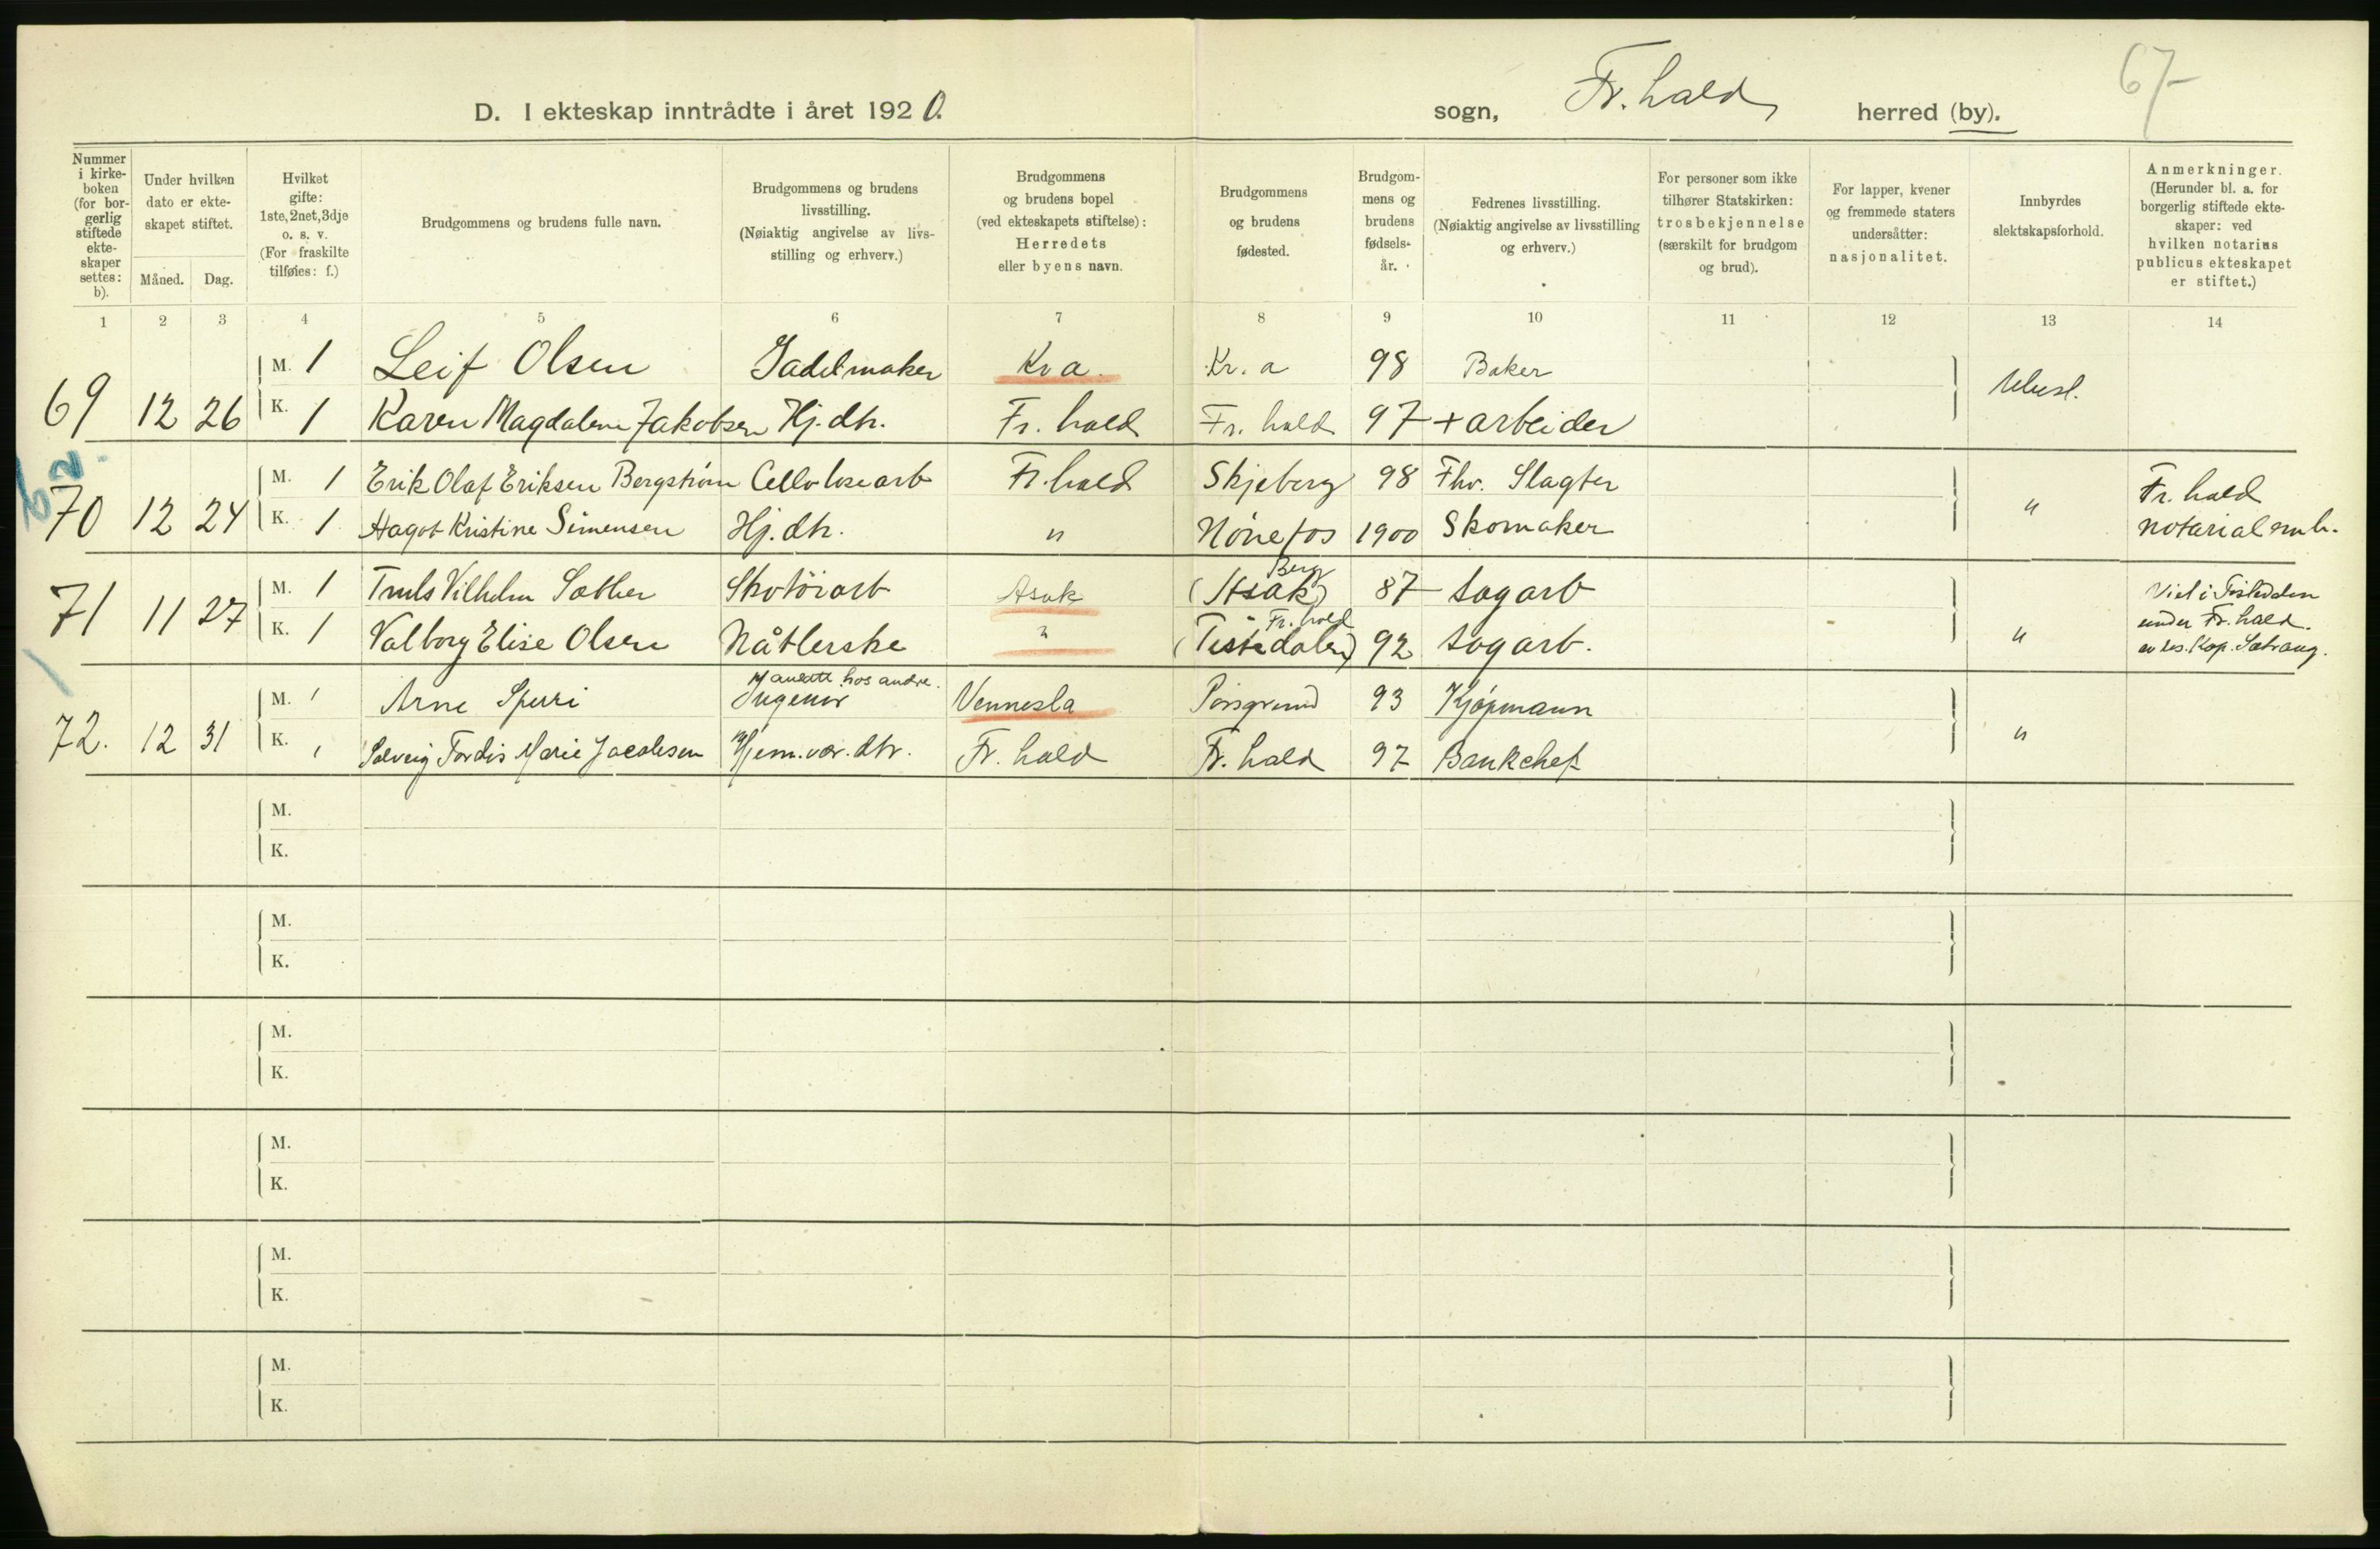 67
D. I ekteskap inntrådte i året 1920.
sogn, Fr.hald herred (by).
Nummer i kirke-boken (for bor-gerlig stiftede ekte-skaper settes: b).
Under hvilken dato er ekte-skapet stiftet.
Måned. Dag.
Hvilket gifte: 1ste, 2net, 3dje o. s. v. (For fraskilte tilføies: f.)
Brudgommens og brudens fulle navn.
Brudgommens og brudens livsstilling. (Nøiaktig angivelse av livs-stilling og erhverv.)
Brudgommens og brudens bopel (ved ekteskapets stiftelse): Herredets eller byens navn.
Brudgommens og brudens fødested.
Brudgom-mens og brudens fødsels-år.
Fedrenes livsstilling. (Nøiaktig angivelse av livsstilling og erhverv.)
For personer som ikke tilhører Statskirken: trosbekjennelse (særskilt for brudgom og brud).
For lapper, kvener og fremmede staters undersåtter: nasjonalitet.
Innbyrdes slektskapsforhold.
Anmerkninger. (Herunder bl. a. for borgerlig stiftede ekte-skaper: ved hvilken notarius publicus ekteskapet er stiftet.)
1 2 3 4 5 6 7 8 9 10 11 12 13 14
M. 1 Leif Olsen Sadelmaker Kr a. Kr. a 98 Baker
69 12 26 K. 1 Karen Magdalene Jakobsen Hj. dtr. Fr. hald Fr. hald 97 + arbeider Ubesl.
M. 1 Erik Olaf Eriksen Bergstrøm Cellulosearb Fr. hald Skjeberg 98 Fhv. Slagter Fr. hald
70 12 24 K. 1 Kristine Simensen Hj. dtr. " Hønefos 1900 Skomaker " notarial
M. 1 Truls Vilhelm Sæther Skotöiarb Asak (Asak) Berg 87 Sagarb Viet i Tistedalen
71 11 27 K. 1 Valborg Elise Olsen Nåtlerske " (Tistedalen) Fr. hald 92 Sagarb. " under Fr. hald.
av res. Kap.
M. 1 Arne Sperri Ingeniør ansatt hos andre. Vennesla Porsgrund 93 Kjøpmann
72. 12 31 K. 1 Solveig Tordis Marie Jacobsen Hjem. vær. dtr. Fr. hald Fr. hald 97 Bankchef "
M.
K.
M.
K.
M.
K.
M.
K.
M.
K.
M.
K.